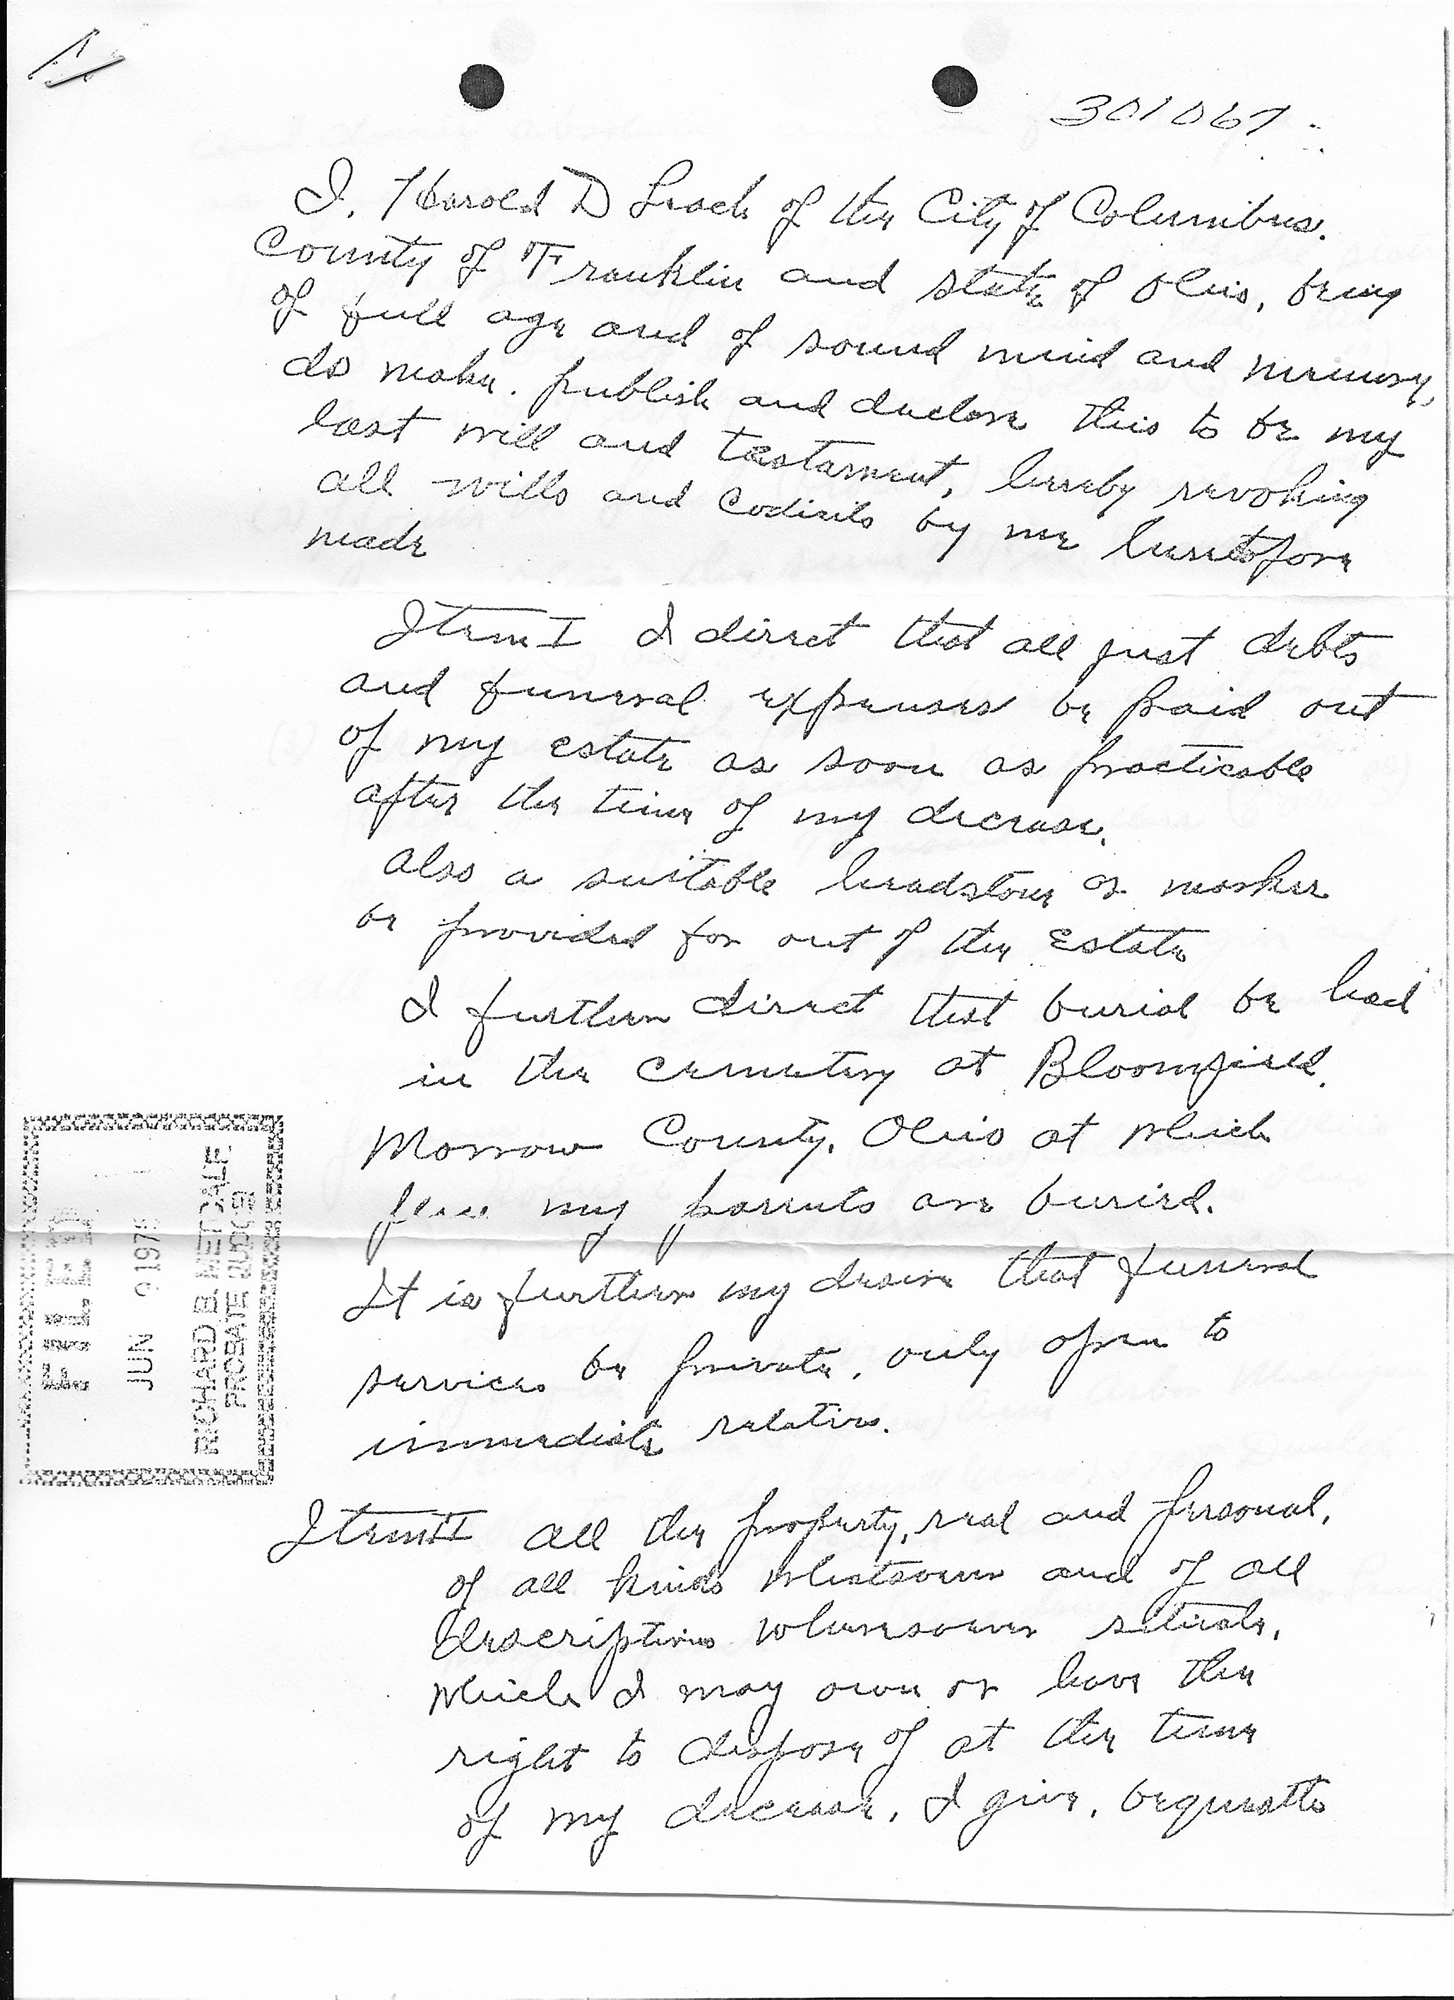 1/
301067
I, Harold D Leach of the City of Columbus.
County of Franklin and state of Ohio, being
of full age and of sound mind and memory,
do make. publish and declare this to be my
last will and testament, hereby revoking
all wills and codicils by me heretofore
made
Item I I direct that all just debts
and funeral expenses be paid out
of my estate as soon as practicable
after the time of my decease.
also a suitable headstone or marker
be provided for out of the Estate
I further direct that burial be had
in the cemetery at Bloomfield,
Morrow County, Ohio at which
my parents are buried.
It is further my desire that funeral
services be private, only open to
immediate relatives.
Item II all the property, real and personal,
of all kinds whatsoever and of all
descriptions wheresoever situate,
which I may own or have the
right to dispose of at the time
of my decease, I give, bequeath
FILED
JUN 9 1975
RICHARD B. METCALF
PROBATE JUDGE